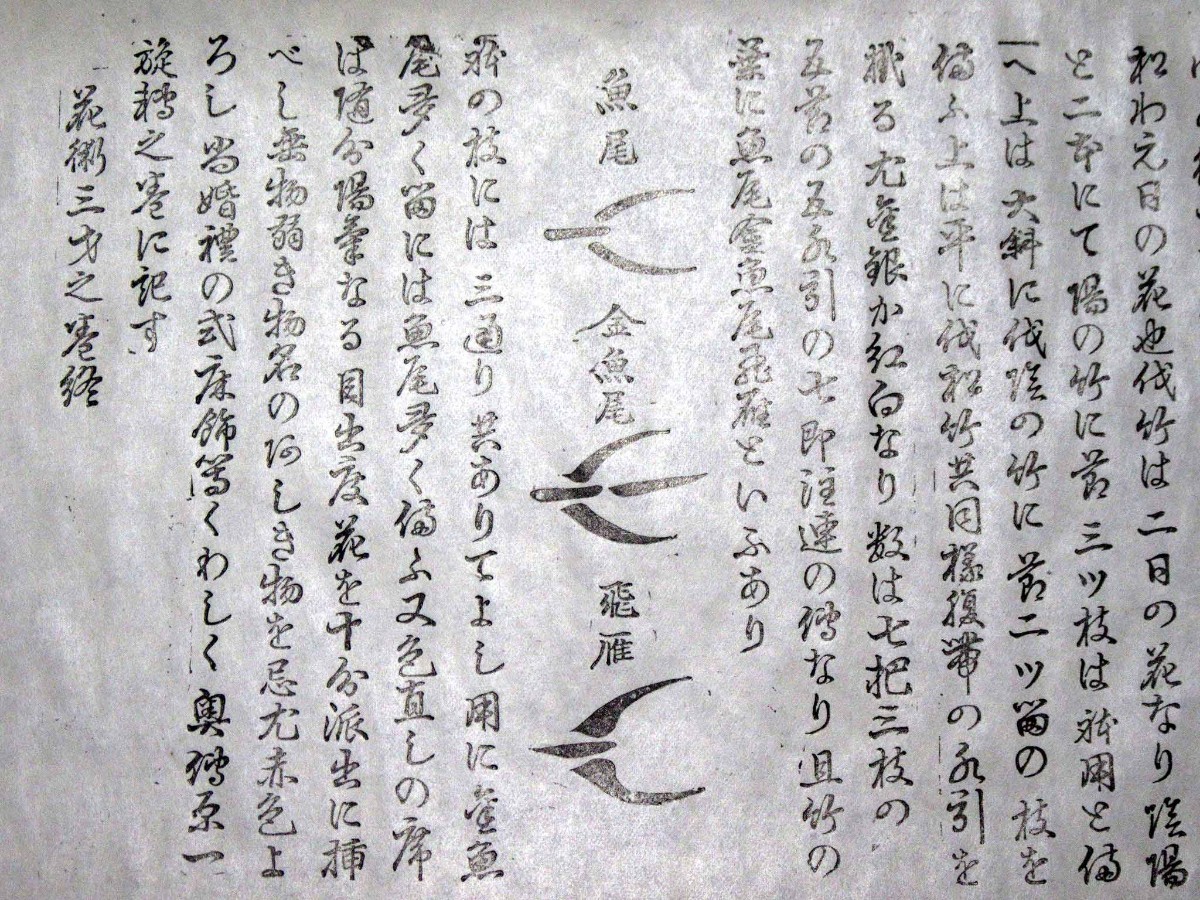 松わ元日の花也伐竹は二日の花なり陰陽
と二本にて陽の竹に節三ツ枝は躰用と備
へ上は大斜に伐陰の竹に節二ツ留の枝を
備ふ上は平に伐松竹共同様腹帯の水引を
織る尤金銀か紅白なり数は七把三枝の
五節の五水引の七即注連の縛なり且竹の
葉に魚尾金魚尾飛雁といふあり
魚尾
金魚尾
飛雁
躰の枝には三通り共ありてよし用に金魚
尾多く留には魚尾多く備ふ又色直しの席
は随分陽氣なる目出度花を十分派出に挿
べし垂物弱き物名のあしき物を忌尤赤色よ
ろし尚婚禮の式床飾等くわしく奥傳原一
旋轉之巻に記す
花術三才之巻終